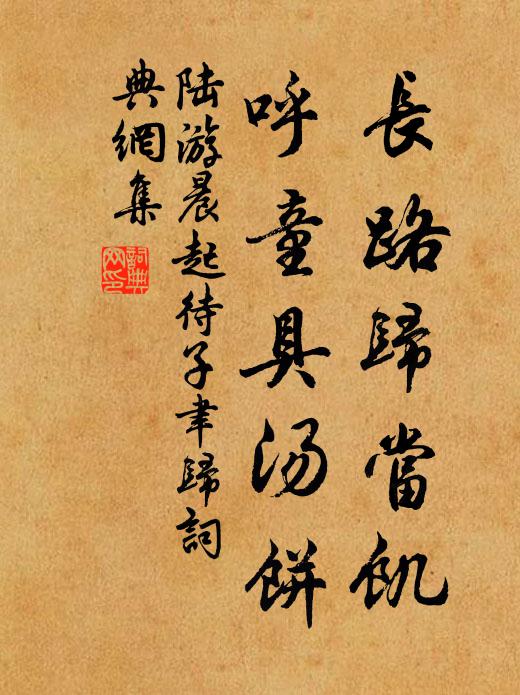 長路歸當飢
呼童具汤餅
陸游晨起待子聿歸詞
典網集
詞典
网印